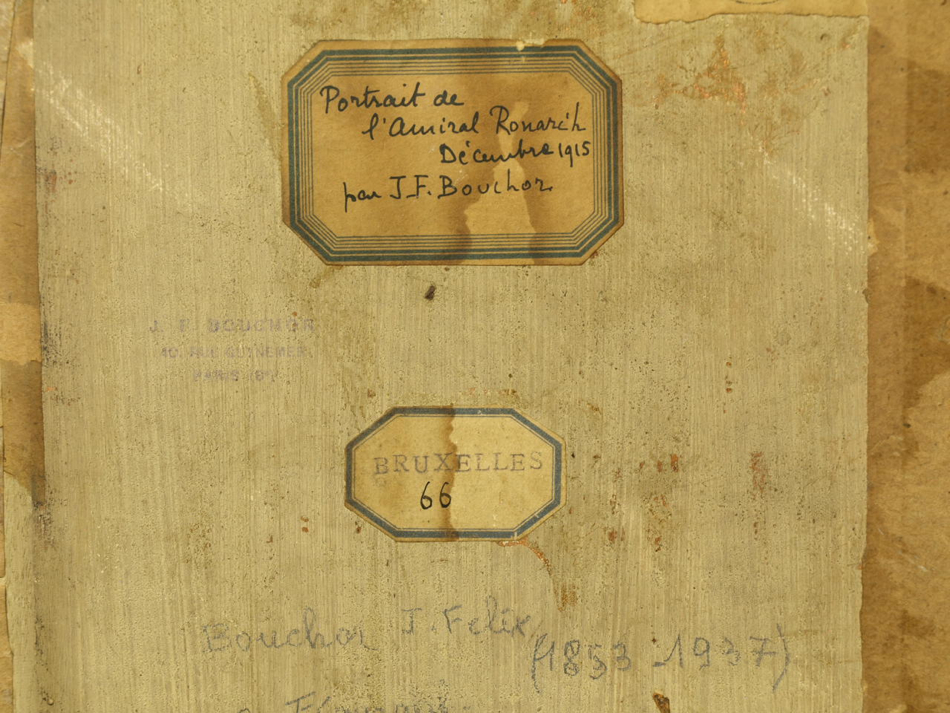 Portrait de
l'Amiral Ronarc'h
Décembre 1915
par J.F. Bouchor
J. F. BOUCHOR
RUE GUYNEMER
PARIS
BRUXELLES
66
Bouchor J. Felix
(1853-1937)